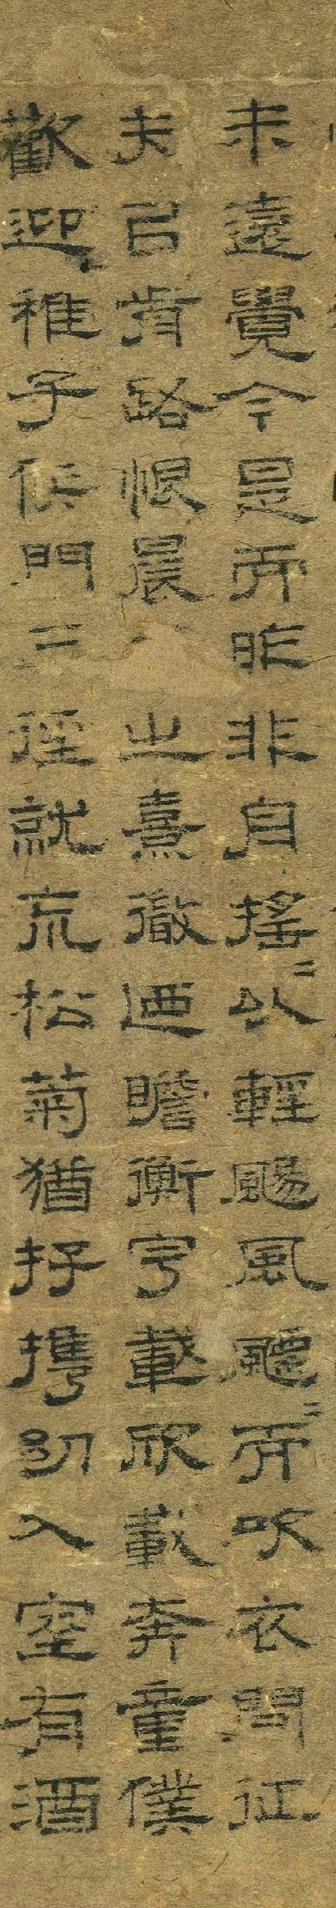 未遠覺今是而昨非舟搖〻以輕颺風飄〻而吹衣問征
夫㠯前路恨晨之熹微迺瞻衡宇載欣載奔童僕
歡迎稚子候門三徑就荒松菊猶存携幼入室有酒